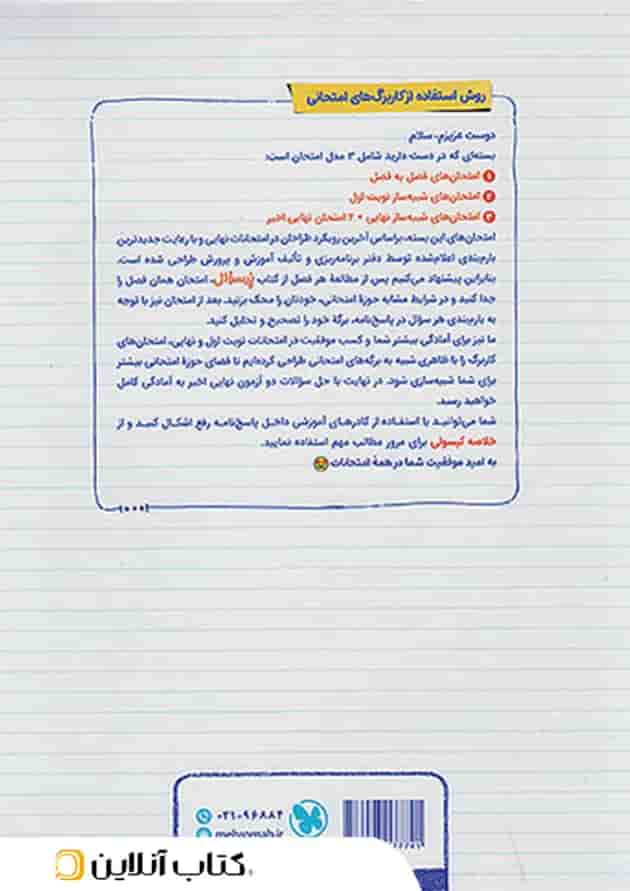 روش استفاده از کاربرگ‌های امتحانی
دوست عزیزم، سلام
بسته‌ای که در دست دارید شامل ۳ مدل امتحان است:
۱ امتحان‌های فصل به فصل
۲ امتحان‌های شبیه‌ساز نوبت اول
۳ امتحان‌های شبیه‌ساز نهایی + ۲ امتحان نهایی اخیر
امتحان‌های این بسته، براساس آخرین رویکرد طراحان در امتحانات نهایی و با رعایت جدیدترین
بارم‌بندی اعلام‌شده توسط دفتر برنامه‌ریزی و تألیف آموزش و پرورش طراحی شده است.
بنابراین پیشنهاد می‌کنیم پس از مطالعهٔ هر فصل از کتاب پرسؤال، امتحان همان فصل را
جدا کنید و در شرایط مشابه حوزهٔ امتحانی، خودتان را محک بزنید. بعد از امتحان نیز با توجه
به بارم‌بندی هر سؤال در پاسخ‌نامه، برگهٔ خود را تصحیح و تحلیل کنید.
ما نیز برای آمادگی بیشتر شما و کسب موفقیت در امتحانات نوبت اول و نهایی، امتحان‌های
کاربرگ را با ظاهری شبیه به برگه‌های امتحانی طراحی کرده‌ایم تا فضای حوزهٔ امتحانی بیشتر
برای شما شبیه‌سازی شود. در نهایت با حل سؤالات دو آزمون نهایی اخیر به آمادگی کامل
خواهید رسید.
شما می‌توانید با استفاده از کادرهای آموزشی داخل پاسخ‌نامه رفع اشکال کنید و از
خلاصه کپسولی برای مرور مطالب مهم استفاده نمایید.
به امید موفقیت شما در همهٔ امتحانات
۰۲۱۰۹۶۸۸۴
mehromah.ir
کتاب آنلاین